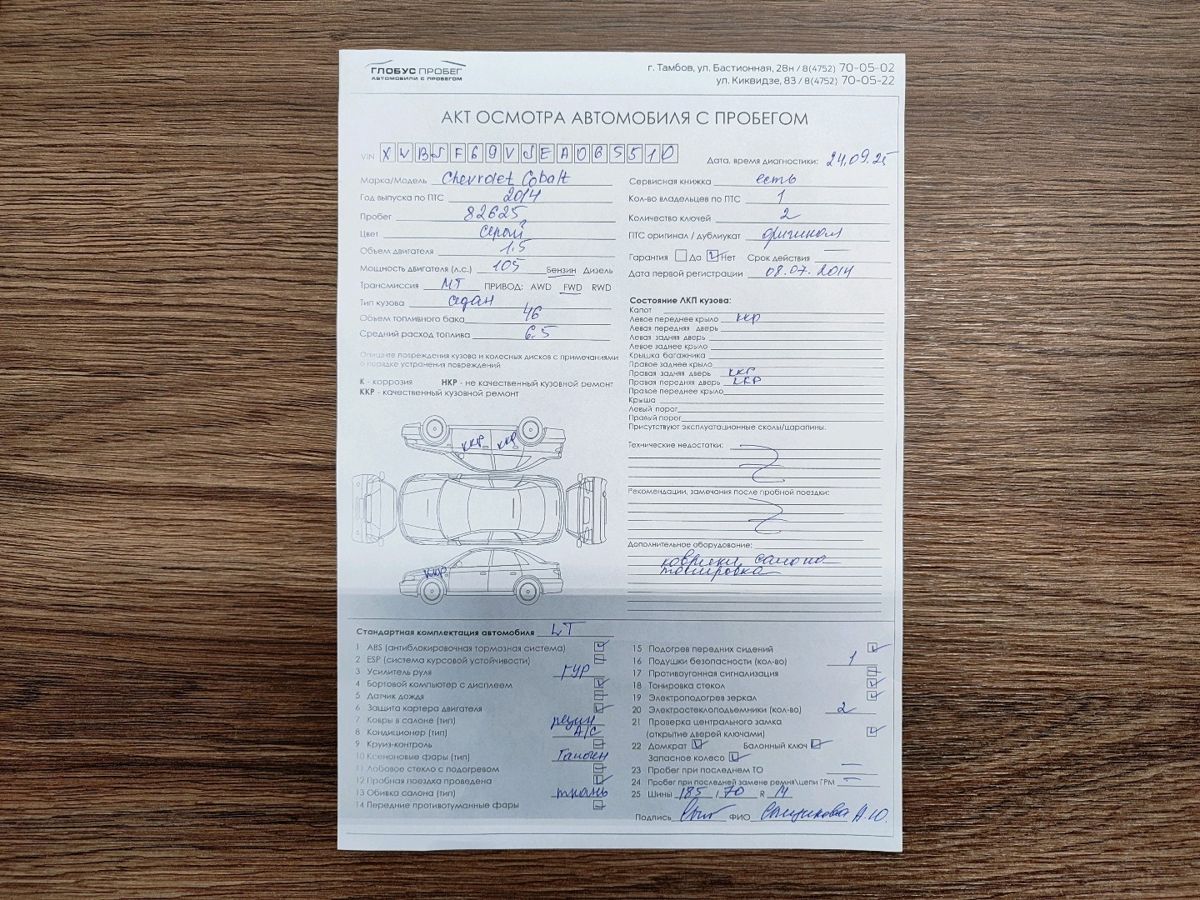 ГЛОБУС ПРОБЕГ
АВТОМОБИЛИ С ПРОБЕГОМ
г. Тамбов, ул. Бастионная, 28н / 8(4752) 70-05-02
ул. Киквидзе, 83 / 8(4752) 70-05-22
АКТ ОСМОТРА АВТОМОБИЛЯ С ПРОБЕГОМ
VIN
Дата, время диагностики: 24.09.25
Марка/Модель Chevrolet Cobalt
Год выпуска по ПТС 2014
Пробег 82625
Цвет серый
Объем двигателя 1.5
Мощность двигателя (л.с.) 105 Бензин Дизель
Трансмиссия МТ ПРИВОД: AWD FWD RWD
Тип кузова седан
Объем топливного бака 46
Средний расход топлива 6.5
Опишите повреждения кузова и колесных дисков с примечаниями
о порядке устранения повреждений
К - коррозия НКР - не качественный кузовной ремонт
ККР - качественный кузовной ремонт
ККР ККР
ККР
Сервисная книжка есть
Кол-во владельцев по ПТС 1
Количество ключей 2
ПТС оригинал / дубликат оригинал
Гарантия Да Нет Срок действия
Дата первой регистрации 08.07.2014
Состояние ЛКП кузова:
Капот
Левое переднее крыло ККР
Левая передняя дверь
Левая задняя дверь
Левое заднее крыло
Крышка багажника
Правое заднее крыло
Правая задняя дверь ККР
Правая передняя дверь ККР
Правое переднее крыло
Крыша
Левый порог
Правый порог
Присутствуют эксплуатационные сколы/царапины.
Технические недостатки:
Рекомендации, замечания после пробной поездки:
Дополнительное оборудование:
коврики салона
тонировка
Стандартная комплектация автомобиля LT
1 ABS (антиблокировочная тормозная система)
2 ESP (система курсовой устойчивости)
3 Усилитель руля ГУР
4 Бортовой компьютер с дисплеем
5 Датчик дождя
6 Защита картера двигателя
7 Ковры в салоне (тип) резин
8 Кондиционер (тип) А/С
9 Круиз-контроль
10 Ксеноновые фары (тип) Галоген
11 Лобовое стекло с подогревом
12 Пробная поездка проведена
13 Обивка салона (тип) ткань
14 Передние противотуманные фары
15 Подогрев передних сидений
16 Подушки безопасности (кол-во) 1
17 Противоугонная сигнализация
18 Тонировка стекол
19 Электроподогрев зеркал
20 Электростеклоподъемники (кол-во) 2
21 Проверка центрального замка
(открытие дверей ключами)
22 Домкрат Балонный ключ
Запасное колесо
23 Пробег при последнем ТО
24 Пробег при последней замене ремня\цепи ГРМ
25 Шины 185 / 70 R 14
Подпись ФИО А.Ю.